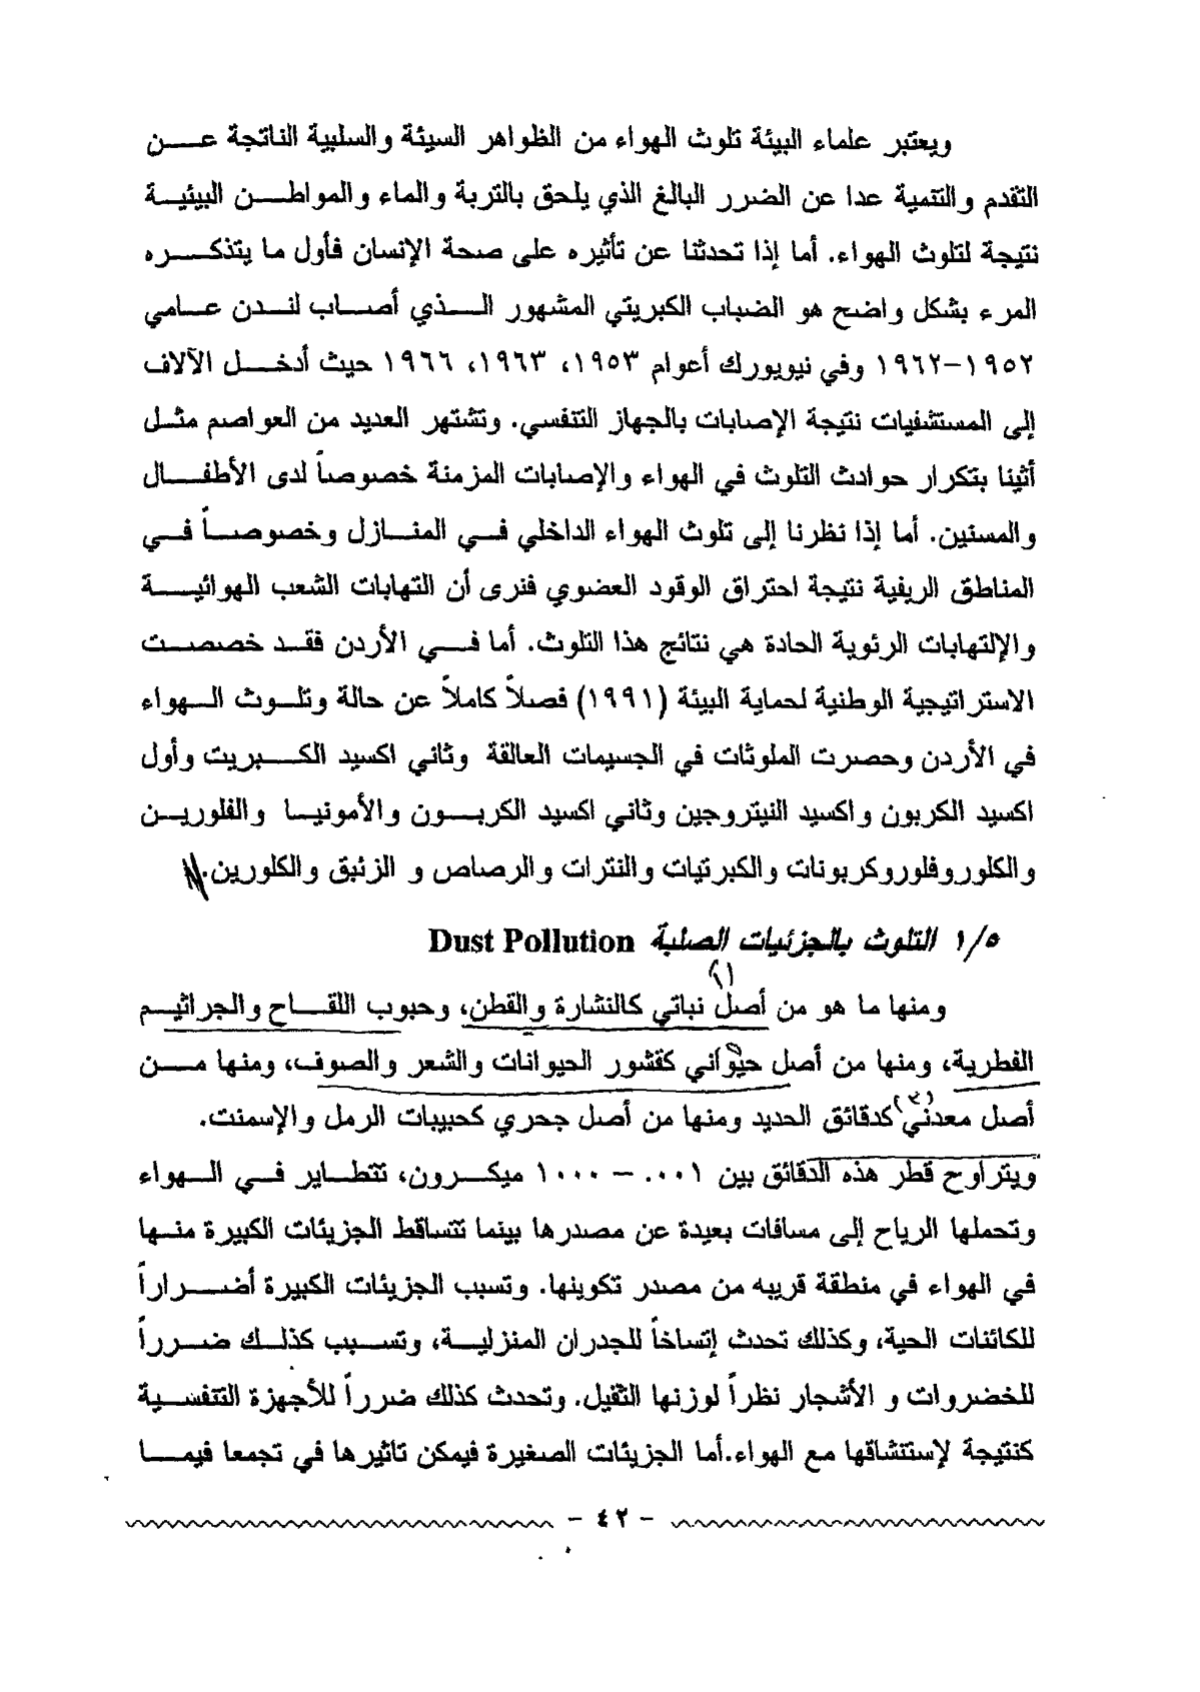 ويعتبر علماء البيئة تلوث الهواء من الظواهر السيئة والسلبية الناتجة عن
التقدم والتنمية عدا عن الضرر البالغ الذي يلحق بالتربة والماء والمواطن البيئية
نتيجة لتلوث الهواء. أما إذا تحدثنا عن تأثيره على صحة الإنسان فأول ما يتذكره
المرء بشكل واضح هو الضباب الكبريتي المشهور الذي أصاب لندن عامي
١٩٥٢-١٩٦٢ وفي نيويورك أعوام ١٩٥٣، ١٩٦٣، ١٩٦٦ حيث أدخل الآلاف
إلى المستشفيات نتيجة الإصابات بالجهاز التنفسي. وتشتهر العديد من العواصم مثل
أثينا بتكرار حوادث التلوث في الهواء والإصابات المزمنة خصوصاً لدى الأطفال
والمسنين. أما إذا نظرنا إلى تلوث الهواء الداخلي في المنازل وخصوصاً في
المناطق الريفية نتيجة احتراق الوقود العضوي فنرى أن التهابات الشعب الهوائية
والإلتهابات الرئوية الحادة هي نتائج هذا التلوث. أما في الأردن فقد خصصت
الاستراتيجية الوطنية لحماية البيئة (١٩٩١) فصلاً كاملاً عن حالة وتلوث الهواء
في الأردن وحصرت الملوثات في الجسيمات العالقة وثاني اكسيد الكبريت وأول
اكسيد الكربون واكسيد النيتروجين وثاني اكسيد الكربون والأمونيا والفلورين
والكلوروفلوروكربونات والكبرتيات والنترات والرصاص و الزئبق والكلورين.
١/٥ التلوث بالجزئيات الصلبة Dust Pollution
(١
ومنها ما هو من أصل نباتي كالنشارة والقطن، وحبوب اللقاح والجراثيم
الفطرية، ومنها من أصل حيواني كقشور الحيوانات والشعر والصوف، ومنها من
(٣)
أصل معدني كدقائق الحديد ومنها من أصل جحري كحبيبات الرمل والإسمنت.
ويتراوح قطر هذه الدقائق بين ٠٠١. – ١٠٠٠ ميكرون، تتطاير في الهواء
وتحملها الرياح إلى مسافات بعيدة عن مصدرها بينما تتساقط الجزيئات الكبيرة منها
في الهواء في منطقة قريبه من مصدر تكوينها. وتسبب الجزيئات الكبيرة أضراراً
للكائنات الحية، وكذلك تحدث إتساخاً للجدران المنزلية، وتسبب كذلك ضرراً
للخضروات و الأشجار نظراً لوزنها الثقيل. وتحدث كذلك ضرراً للأجهزة التنفسية
كنتيجة لإستنشاقها مع الهواء.أما الجزيئات الصغيرة فيمكن تاثيرها في تجمعا فيما
- ٤٢ -